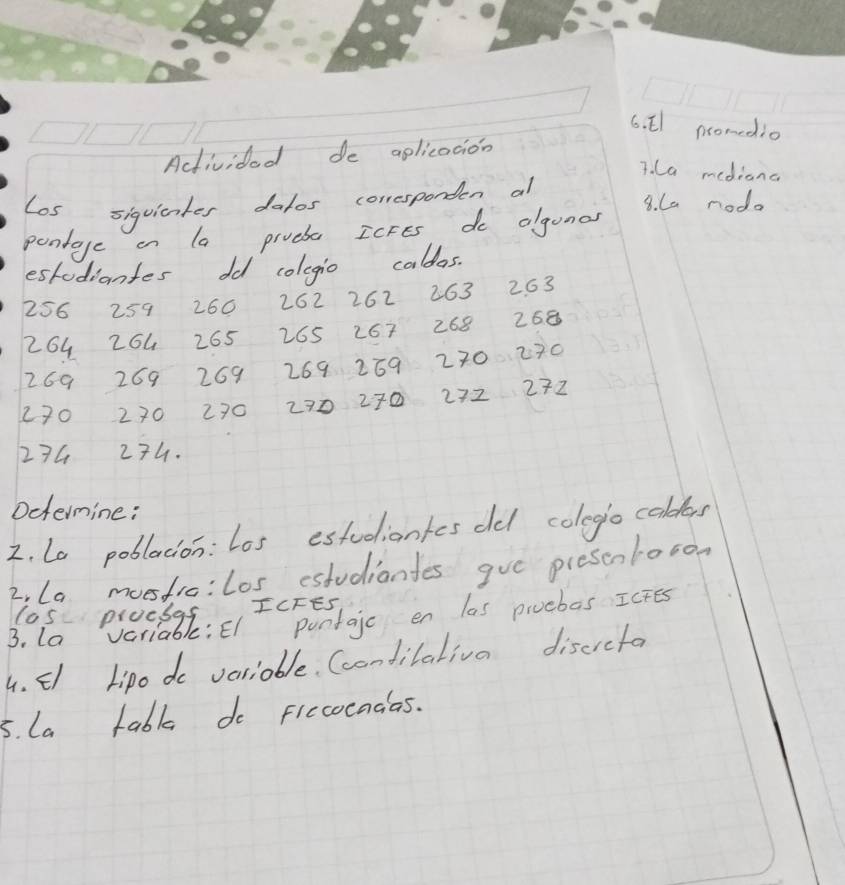 Actividad de aplicación
Los siguientes datos corresponden al
puntaje en la prueba ICFES de algunos
estudiantes del colegio caldas.
256 259 260 262 262 263 263
264 264 265 265 267 268 268
269 269 269 269 269 270 270
270 270 270 270 270 272 272
274 274.
Determine:
1. La población: Los estudiantes del colegio caldas
2. La muestra: Los estudiantes que presentaron
las pruebas ICFES.
3. La variable: El puntaje en las pruebas ICFES
4. El tipo de variable. Cuantitativa discreta
5. La tabla de Frecuencias.
6. El promedio
7. La mediana
8. La moda